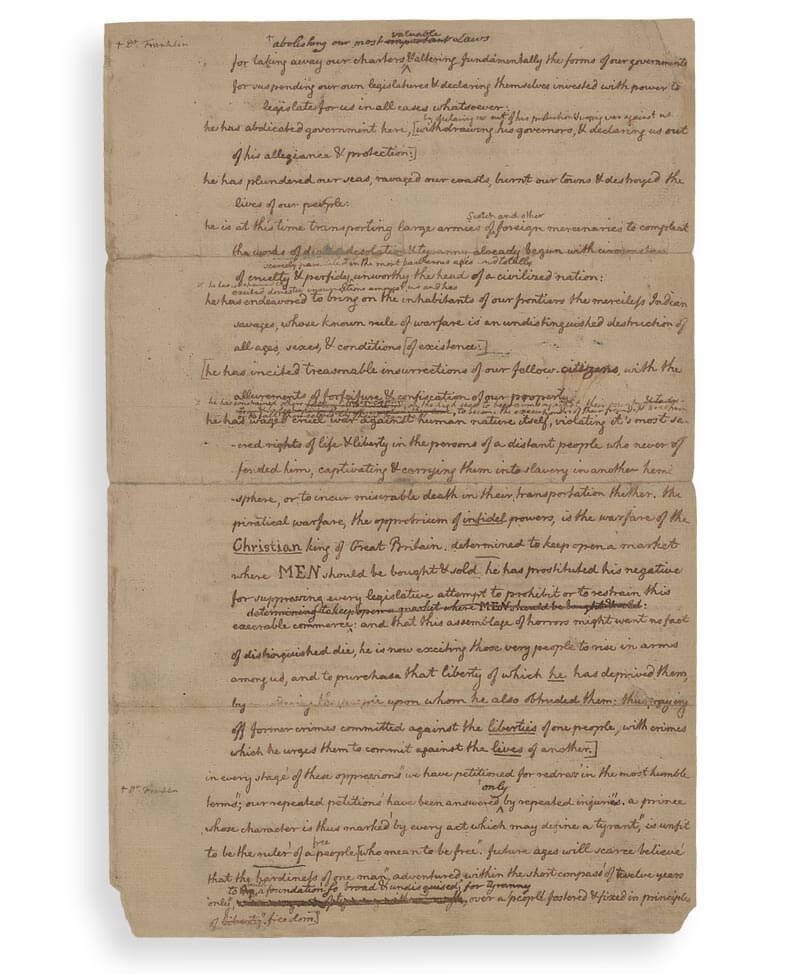 + Dr. Franklin
+ abolishing our most important valuable Laws
for taking away our charters & altering fundamentally the forms of our governments
for suspending our own legislatures & declaring themselves invested with power to
legislate for us in all cases whatsoever:
by declaring us out of his protection & waging war against us
he has abdicated government here, [withdrawing his governors, & declaring us out
of his allegiance & protection:]
he has plundered our seas, ravaged our coasts, burnt our towns & destroyed the
lives of our people:
Scotch and other
he is at this time transporting large armies of foreign mercenaries to compleat
the works of death desolation & tyranny already begun with circumstances
scarcely paralleled in the most barbarous ages and totally
of cruelty & perfidy unworthy the head of a civilized nation:
excited domestic insurrections amongst us and has
he has endeavored to bring on the inhabitants of our frontiers the merciless Indian
savages, whose known rule of warfare is an undistinguished destruction of
all ages, sexes, & conditions [of existence:]
[he has incited treasonable insurrections of our fellow-citizens, with the
allurements of forfeiture & confiscation of our property
he has constrained others
he has waged cruel war against human nature itself, violating it's most sa-
-cred rights of life & liberty in the persons of a distant people who never of
fended him, captivating & carrying them into slavery in another hemi
-sphere, or to incur miserable death in their transportation thither. this
piratical warfare, the opprobrium of infidel powers, is the warfare of the
Christian king of Great Britain. determined to keep open a market
where MEN should be bought & sold he has prostituted his negative
for suppressing every legislative attempt to prohibit or to restrain this
determining to keep open a market where MEN should be bought & sold:
execrable commerce: and that this assemblage of horrors might want no fact
of distinguished die, he is now exciting those very people to rise in arms
among us, and to purchase that liberty of which he has deprived them,
by murdering the people upon whom he also obtruded them: thus paying
off former crimes committed against the liberties of one people, with crimes
which he urges them to commit against the lives of another.]
in every stage of these oppressions we have petitioned for redress in the most humble
only
+ Dr. Franklin
terms; our repeated petitions have been answered by repeated injuries. a prince
whose character is thus marked by every act which may define a tyrant, is unfit
free
to be the ruler of a people [who mean to be free. future ages will scarce believe
that the hardiness of one man, adventured within the short compass of twelve years
to lay a foundation so broad & undisguised, for tyranny
only, over a people fostered & fixed in principles
of liberty. freedom]